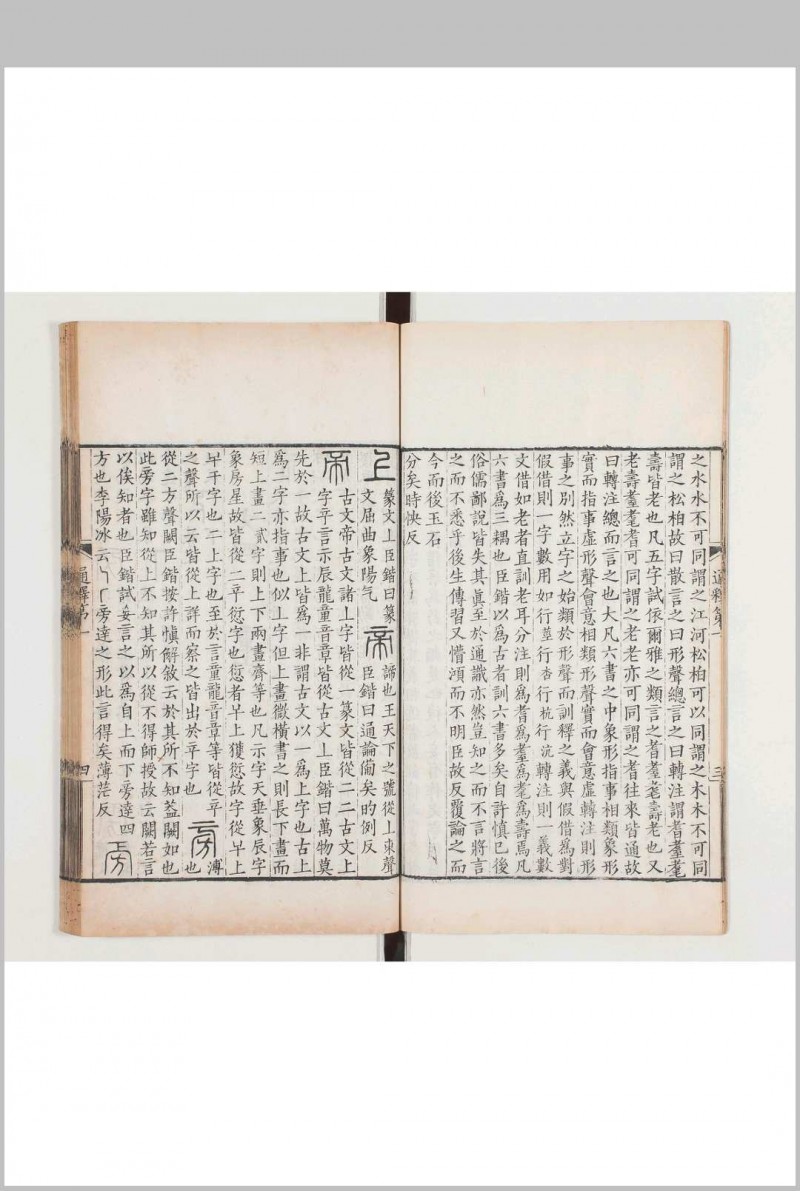 之水水不可同謂之江河松柏可以同謂之木木不可同
謂之松柏故曰散言之曰形聲總言之曰轉注謂耆耋耄
壽皆老也凡五字試依爾雅之類言之耆耋耄壽老也又
老壽耋耄耆可同謂之老老亦可同謂之耆往來皆通故
曰轉注總而言之也大凡六書之中象形指事相類象形
實而指事虛形聲會意相類形聲實而會意虛轉注則形
事之別然立字之始類於形聲而訓釋之義與假借爲對
假借則一字數用如行莖行杏行杭行沆轉注則一義數
文借如老者直訓老耳分注則爲耆爲耋爲耄爲壽焉凡
六書爲三耦也臣鍇以爲古者訓六書多矣自許慎已後
俗儒鄙說皆失其眞至於通識亦然豈知之而不言將言
之而不悉乎後生傳習又懵澒而不明臣故反覆論之而
今而後玉石
分矣時怏反
通釋第一
三
上 篆文丄臣鍇曰篆
文屈曲象陽气 帝 諦也王天下之號從丄朿聲
臣鍇曰通論僃矣的例反
古文帝古文諸丄字皆從一篆文皆從二二古文上
字䇂言示辰龍童音章皆從古文丄臣鍇曰萬物莫
先於一故古文上皆爲一非謂古文以一爲上字也古上
爲二字亦指事也似丄字但上畫微橫書之則長下畫而
短上畫二貳字則上下兩畫齊等也凡示字天垂象辰字
象房星故皆從二䇂愆字也愆者䇂上獲愆故字從䇂上
䇂干字也二上字也至於言童龍音章等皆從䇂
之聲所以云皆從上詳而察之皆出於䇂字也 旁 溥
也
從二方聲闕臣鍇按許慎解敘云於其所不知蓋闕如也
此旁字雖知從上不知其所以從不得師授故云闕若言
以俟知者也臣鍇試妄言之以爲自上而下旁達四
方也李陽冰云乀𠂆旁達之形此言得矣薄茫反 㫄
通釋第一
四